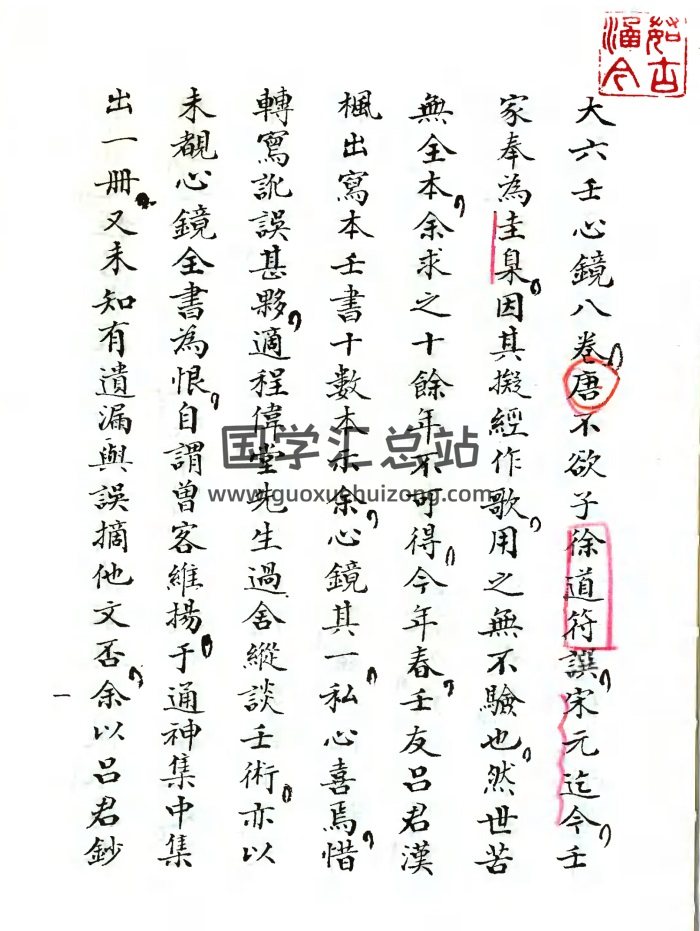 大六壬心鏡八卷唐不欲子徐道符譔宋元迄今壬
家奉為圭臬因其擬經作歌用之無不驗也然世苦
無全本余求之十餘年不可得今年春壬友呂君漢
楓出寫本壬書十數本示余心鏡其一私心喜焉惜
轉寫訛誤甚夥適程偉堂先生過舍縱談壬術亦以
未覩心鏡全書為恨自謂曾客維揚于通神集中集
出一冊又未知有遺漏與誤摘他文否余以呂君鈔
一
茹古涵今
国学汇总站
www.guoxuehuizong.com